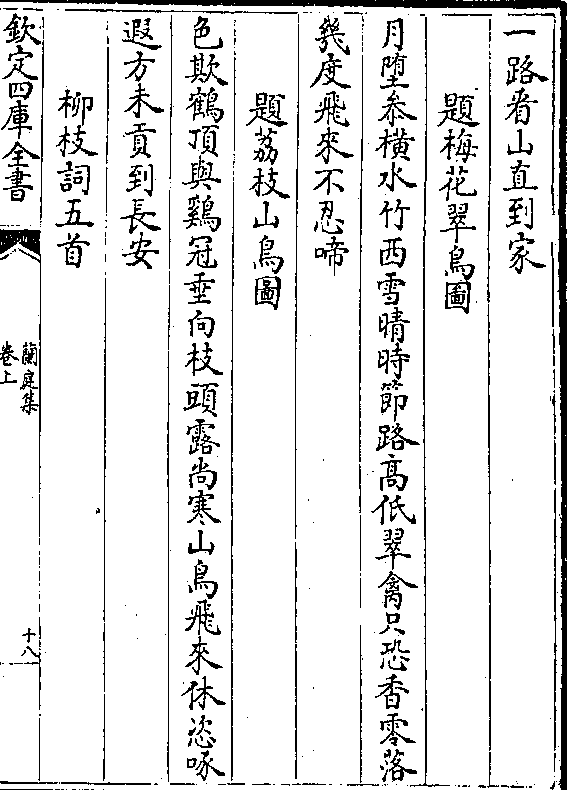 一路看山直到家
題梅花翠鳥圖
月墮參橫水竹西雪晴時節路高低翠禽只恐香零落
幾度飛來不忍啼
題荔枝山鳥圖
色欺鶴頂與鷄冠垂向枝頭露尚寒山鳥飛來休恣啄
遐方未貢到長安
柳枝詞五首
欽定四庫全書
蘭庭集
卷上
十八